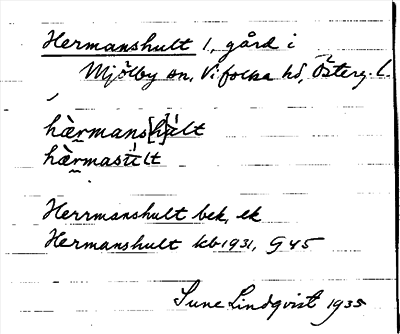 Hermanshult 1, gård i
Mjölby sn, Vifolka hd, Österg. l.
hèrmans[h]últ
hèrmastúlt
Herrmanshult bek, ek
Hermanshult kb 1931, G 45
Sune Lindqvist 1935